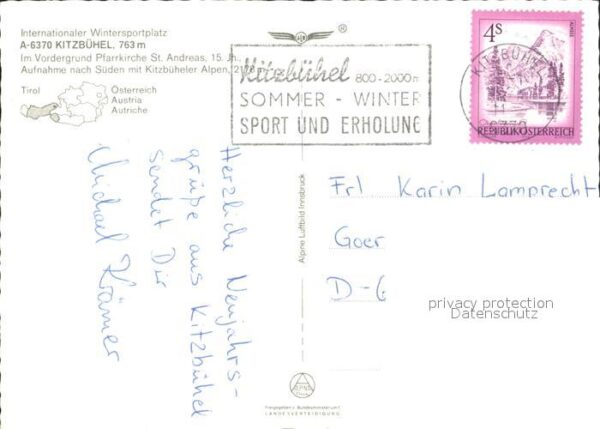 Internationaler Wintersportplatz
A-6370 KITZBÜHEL, 763 m
Im Vordergrund Pfarrkirche St. Andreas, 15. Jh.
Aufnahme nach Süden mit Kitzbüheler Alpen,
Tirol
Österreich
Austria
Autriche
®
Kitzbühel 800-2000m
SOMMER - WINTER
SPORT UND ERHOLUNG
4S
KITZBÜHEL
REPUBLIK ÖSTERREICH
Herzliche Neujahrs-
grüße aus Kitzbühel
sendet Dir
Michael Krämer
Alpine Luftbild Innsbruck
Frl Karin Lamprecht
Goer
D-6
privacy protection
Datenschutz
Freigegeben v. Bundesministerium f.
LANDESVERTEIDIGUNG